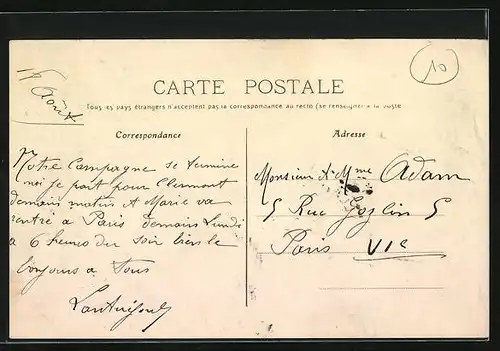 17 Août
10
CARTE POSTALE
Tous les pays étrangers n'acceptent pas la correspondance au recto (se renseigner à la poste
Correspondance
Adresse
Notre Campagne se termine
moi je part pour Clermont
demain matin et Marie va
rentré a Paris demain Lundi
a 6 heures du soir bien le
bonjours a Tous
Monsieur & Mme Adam
5 Rue Gozlin 5
Paris VIe